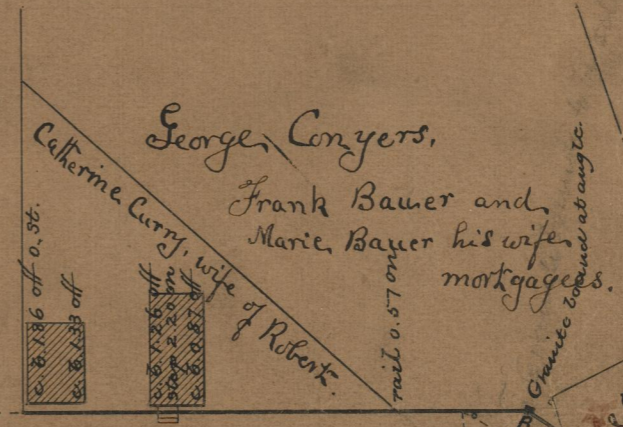 George Conyers.
Frank Bauer and
Marie Bauer his wife
mortgagees.
Catherine Curry, wife of Robert.
c.b. 1.86 off o. St.
c.b. 1.33 off
c.b. 1.26 off
step 2.20 on
c.b. 0.87 off
rail 0.57 on
Granite bound at angle.